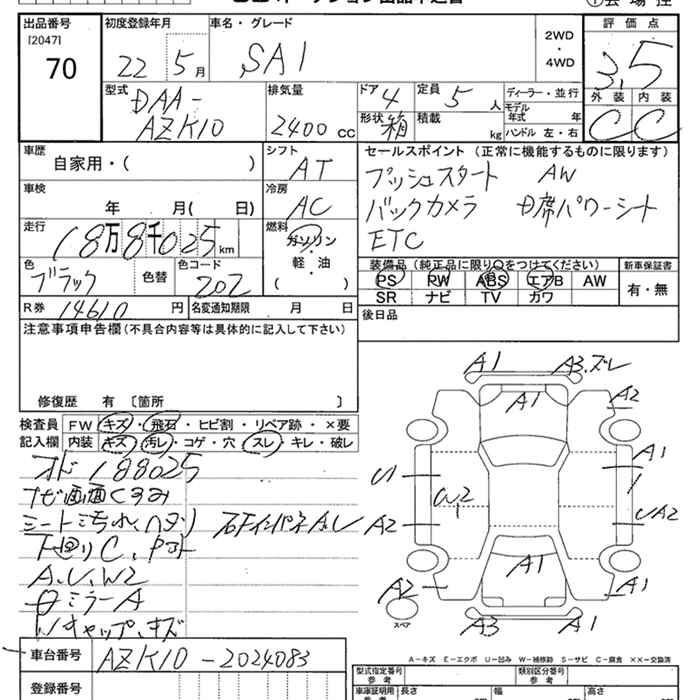 出品番号 初度登録年月 車名・グレード 評価点
[2047]
70 22年5月 SAI 2WD・4WD 3.5
外装 内装
C C
型式 排気量 ドア 定員 ディーラー・並行
DAA-AZK10 2400cc 4 5人 モデル年式 年
形状 箱 積載 kg ハンドル 左・右
車歴 シフト セールスポイント (正常に機能するものに限ります)
自家用・( ) AT プッシュスタート AW
車検 冷房 バックカメラ 日席パワーシート
年 月( 日) AC ETC
走行 燃料
18万8千025km ガソリン・軽・油
( )
色 色替 色コード 装備品 (純正品に限り○をつけてください) 新車保証書
ブラック 202 PS PW ABS エアB AW 有・無
SR ナビ TV カワ
R券 14610円 名変通知期限 月 日 後日品
注意事項申告欄(不具合内容等は具体的に記入して下さい)
修復歴 有 〔箇所 〕
検査員 FW キズ・飛石・ヒビ割・リペア跡・×要
記入欄 内装 キズ・汚レ・コゲ・穴・スレ・キレ・破レ
オド188025
ナビ画面くすみ
シート汚れ、ハゲ)
下廻りC
A、U、W2
ミラーA
Wキャップ、キズ
A1 A3.ズレ
A1 A2
A1
U1 W2
A2 UA2
A1
A2 A1
スペア
A3 A1
A-キズ E-エクボ U-凹み W-補修跡 S-サビ C-腐食 XX-交換済
車台番号 AZK10-2024083
型式指定番号 参考 類別区分番号 参考
登録番号
車庫証明用 参考 長さ 幅 高さ